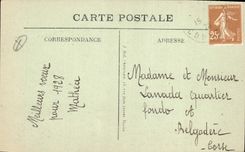 CARTE POSTALE
CORRESPONDANCE
ADRESSE
25c
Meilleurs vœux
pour 1928
Mathéa
Madame et Monsieur
Lanada quartier
fondo
à
Belgodère
Corse